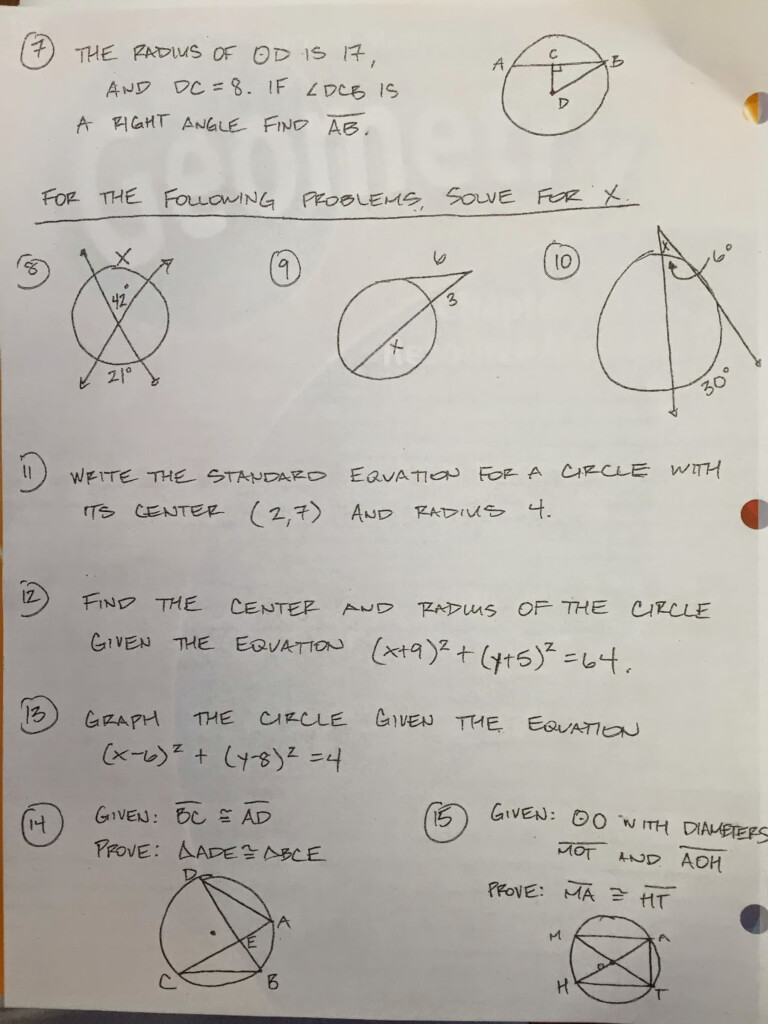 7 THE RADIUS OF ⊙D IS 17,
AND DC = 8. IF ∠DCB IS
A RIGHT ANGLE FIND AB.
A C B
D
FOR THE FOLLOWING PROBLEMS, SOLVE FOR X.
8 X
42°
21°
9 6
3
X
10 X 6°
30°
11 WRITE THE STANDARD EQUATION FOR A CIRCLE WITH
ITS CENTER (2,7) AND RADIUS 4.
12 FIND THE CENTER AND RADIUS OF THE CIRCLE
GIVEN THE EQUATION (x+9)² + (y+5)² = 64.
13 GRAPH THE CIRCLE GIVEN THE EQUATION
(x-6)² + (y-8)² = 4
14 GIVEN: BC ≅ AD
PROVE: ΔADE ≅ ΔBCE
D
A
E
C B
15 GIVEN: ⊙O WITH DIAMETERS
MOT AND AOH
PROVE: MA ≅ HT
M A
O
H T
Geometry